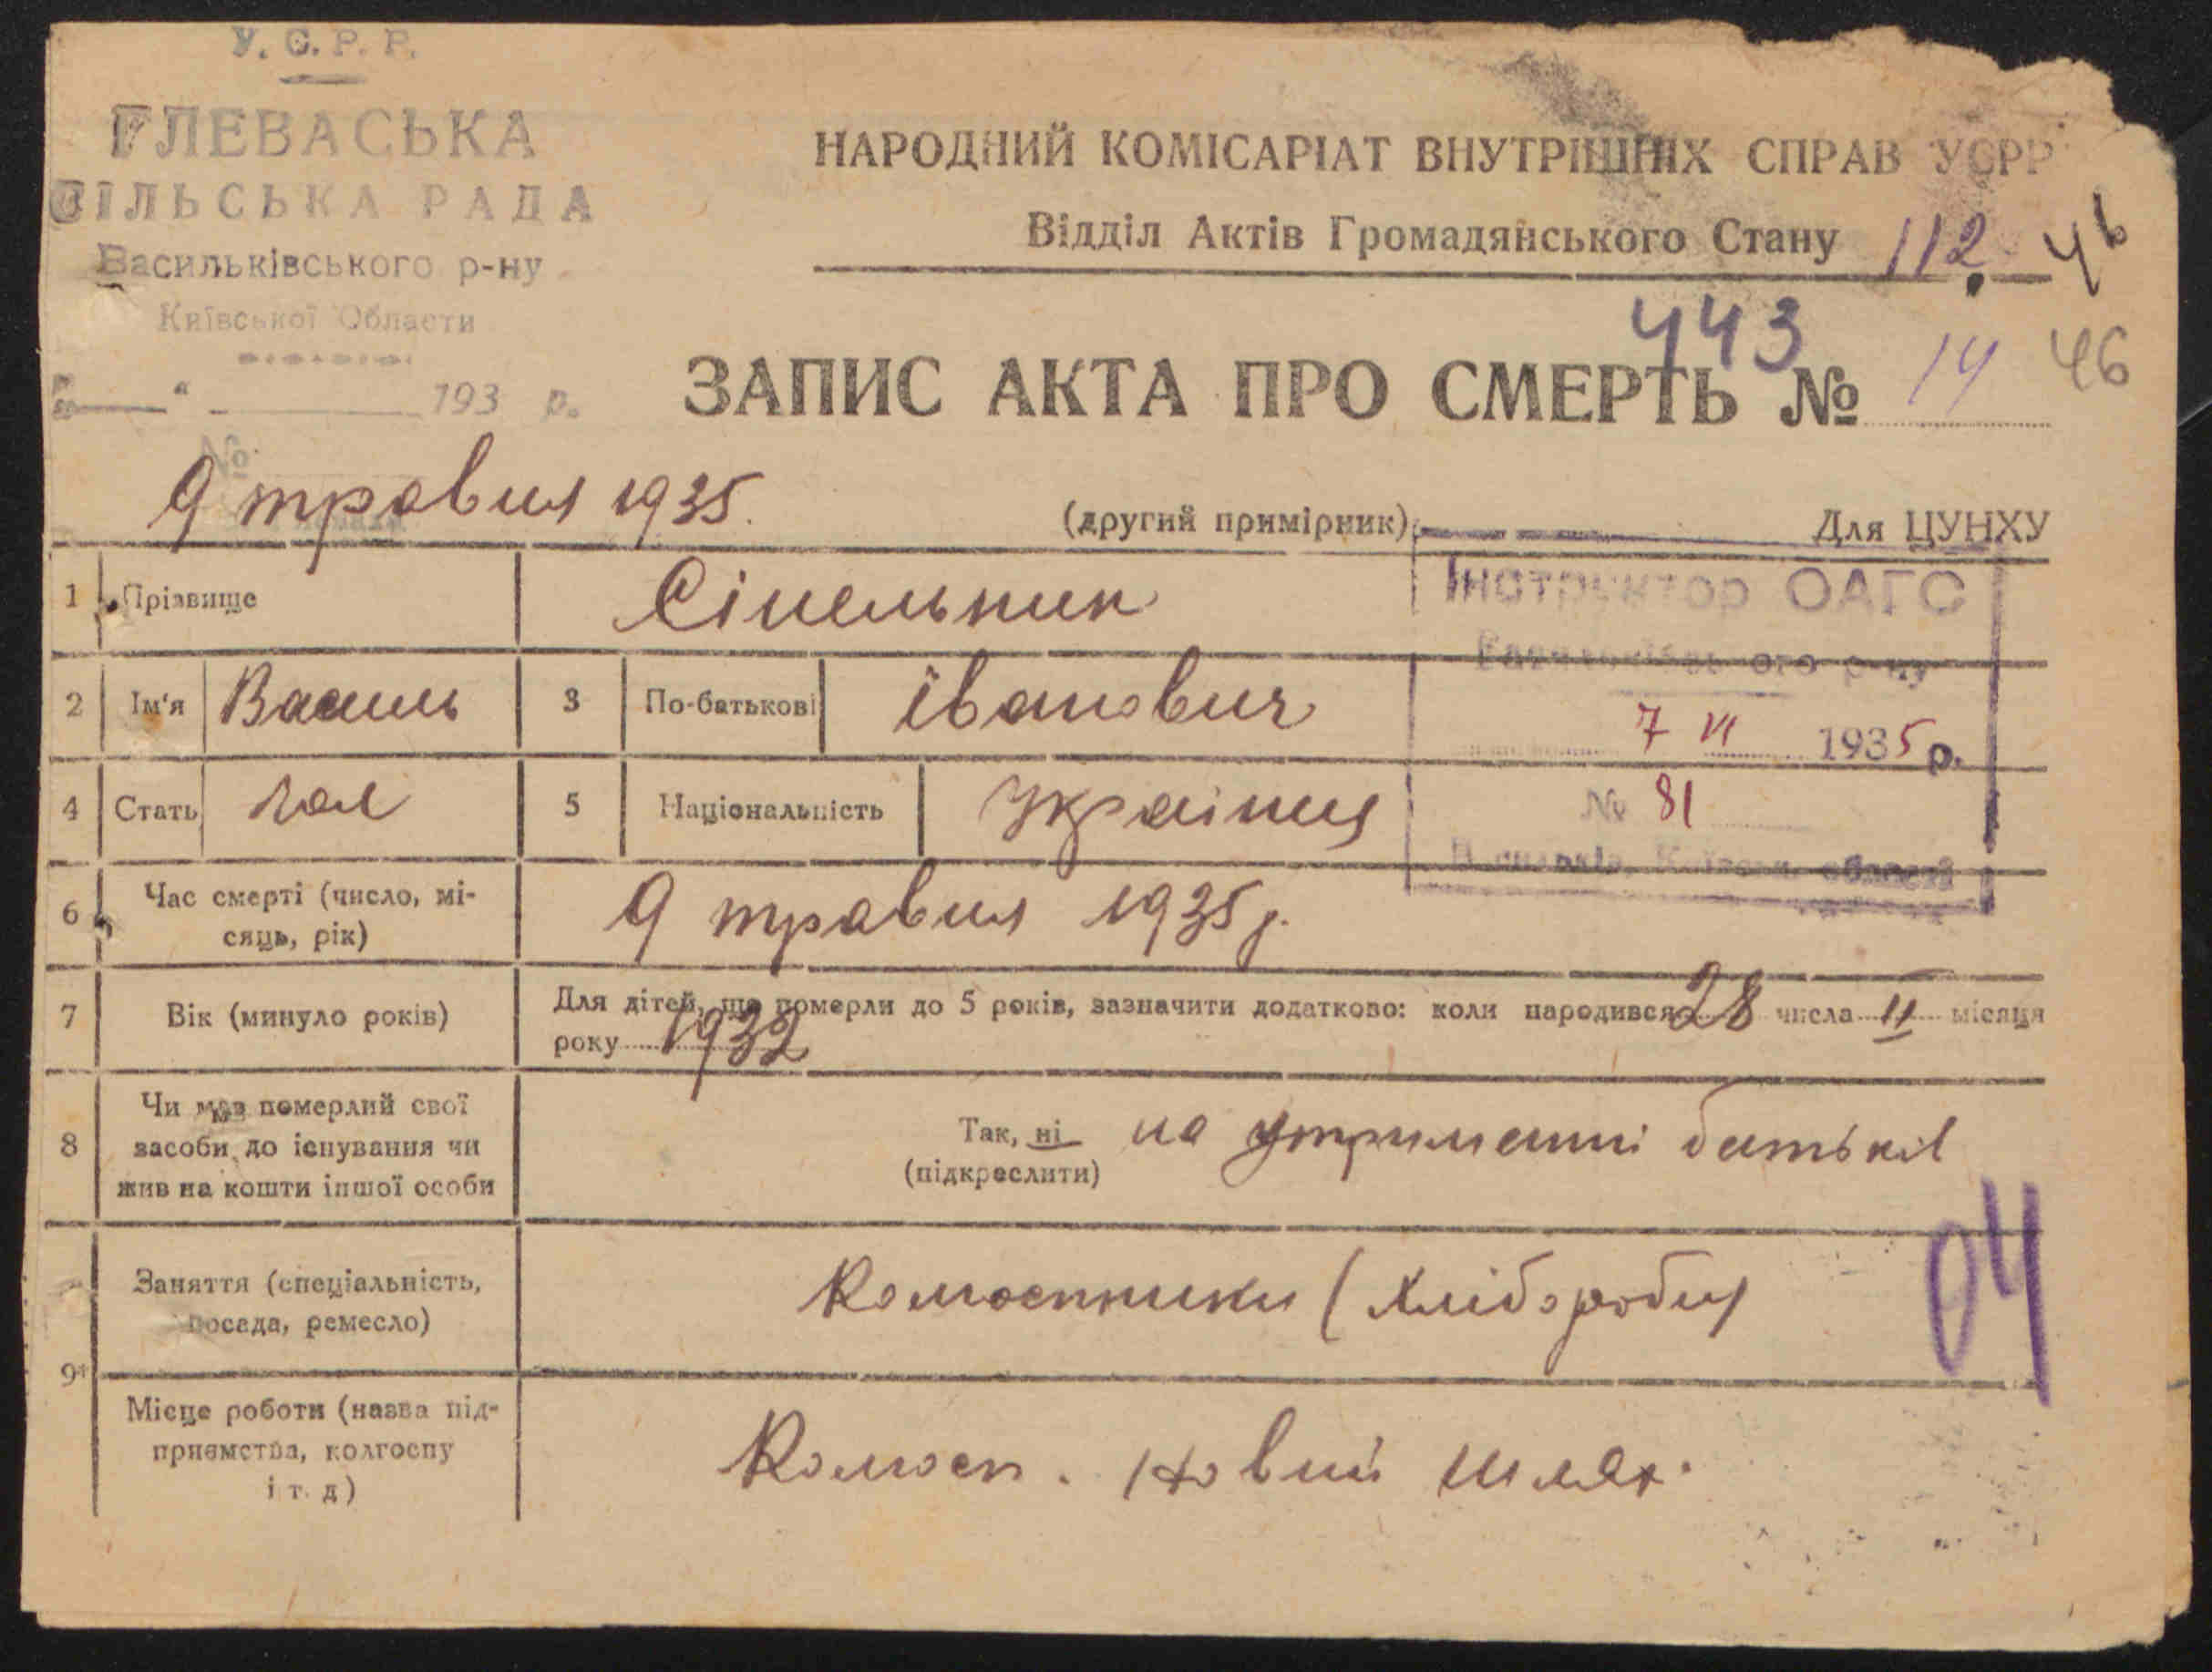 У. С. Р. Р.
ГЛЕВАСЬКА
СІЛЬСЬКА РАДА
Васильківського р-ну
Київської Области
193 р.
№
НАРОДНИЙ КОМІСАРІАТ ВНУТРІШНІХ СПРАВ УСРР
Відділ Актів Громадянського Стану 112. 46
443
ЗАПИС АКТА ПРО СМЕРТЬ № 14 46
9 травня 1935.
(другий примірник) Для ЦУНХУ
Інструктор ОАГС
Васильківського р-ну
7 VI 1935 р.
№ 81
Васильків, Київськ. області
1 Прізвище Сінельник
2 Ім'я Василь 3 По-батькові Іванович
4 Стать чол 5 Національність Українця
6 Час смерті (число, мі-
сяць, рік) 9 травня 1935 р.
7 Вік (минуло років) Для дітей, що померли до 5 років, зазначити додатково: коли народився 28 числа II місяця
року 1932
8 Чи мав померлий свої
засоби до існування чи
жив на кошти іншої особи
Так, ні на утриманні батьків
(підкреслити)
9 Заняття (спеціальність,
посада, ремесло)
Колгоспники (Хлібороби)
04
Місце роботи (назва під-
приємства, колгоспу
і т. д)
Колгосп. Новий Шлях.